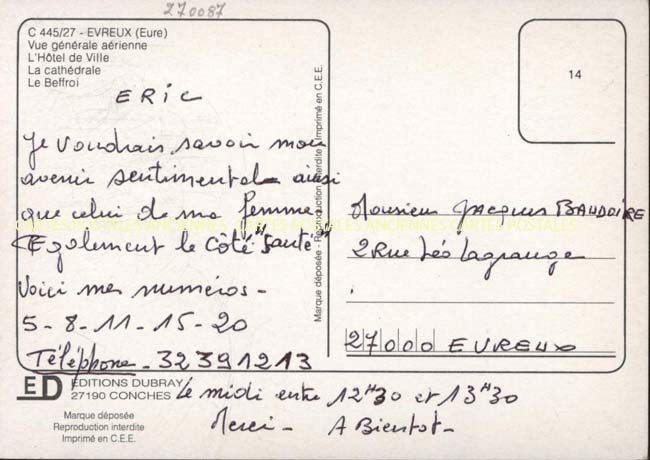 270087
C 445/27 - EVREUX (Eure)
Vue générale aérienne
L'Hôtel de Ville
La cathédrale
Le Beffroi
14
ERIC
Je voudrais savoir mon
avenir sentimental ainsi
que celui de ma femme
Egalement le côté "santé"
Voici mes numéros -
5 - 8 - 11 - 15 - 20
Téléphone - 32391213
Le midi entre 12H30 et 13H30
Merci - A Bientot -
Marque déposée - Reproduction interdite - Imprimé en C.E.E.
Monsieur Jacques BAUDOIRE
2 Rue Léo Lagrange
27000 EVREUX
CARTES POSTALES ANCIENNES CARTES POSTALES
ED EDITIONS DUBRAY
27190 CONCHES
Marque déposée
Reproduction interdite
Imprimé en C.E.E.